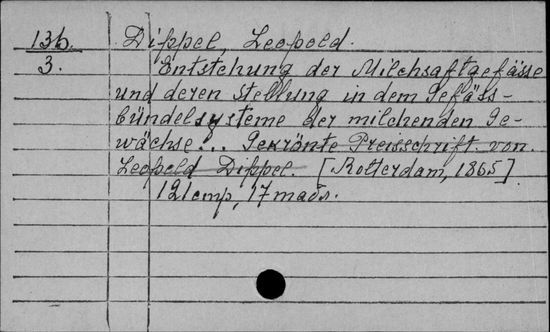 136. Dippel, Leopold.
3. Entstehung der Milchsaftgefässe
und deren Stellung in dem Gefäss-
bündelsysteme der milchenden Ge-
wächse... Gekrönte Preisschrift von
Leopold Dippel. [Rotterdam, 1865]
121emp, 17 maos.